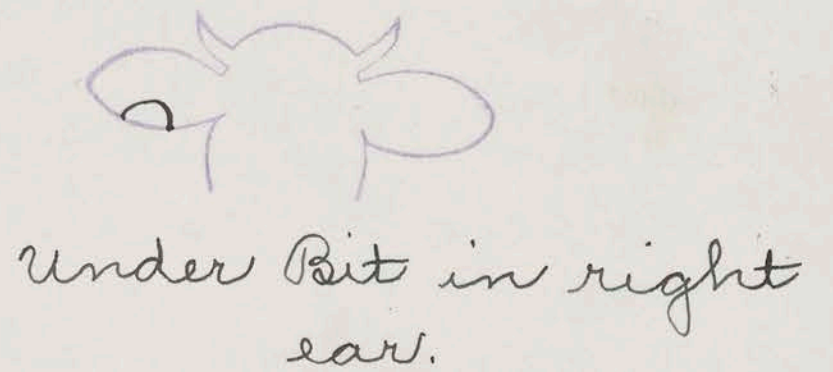 Under Bit in right
ear.